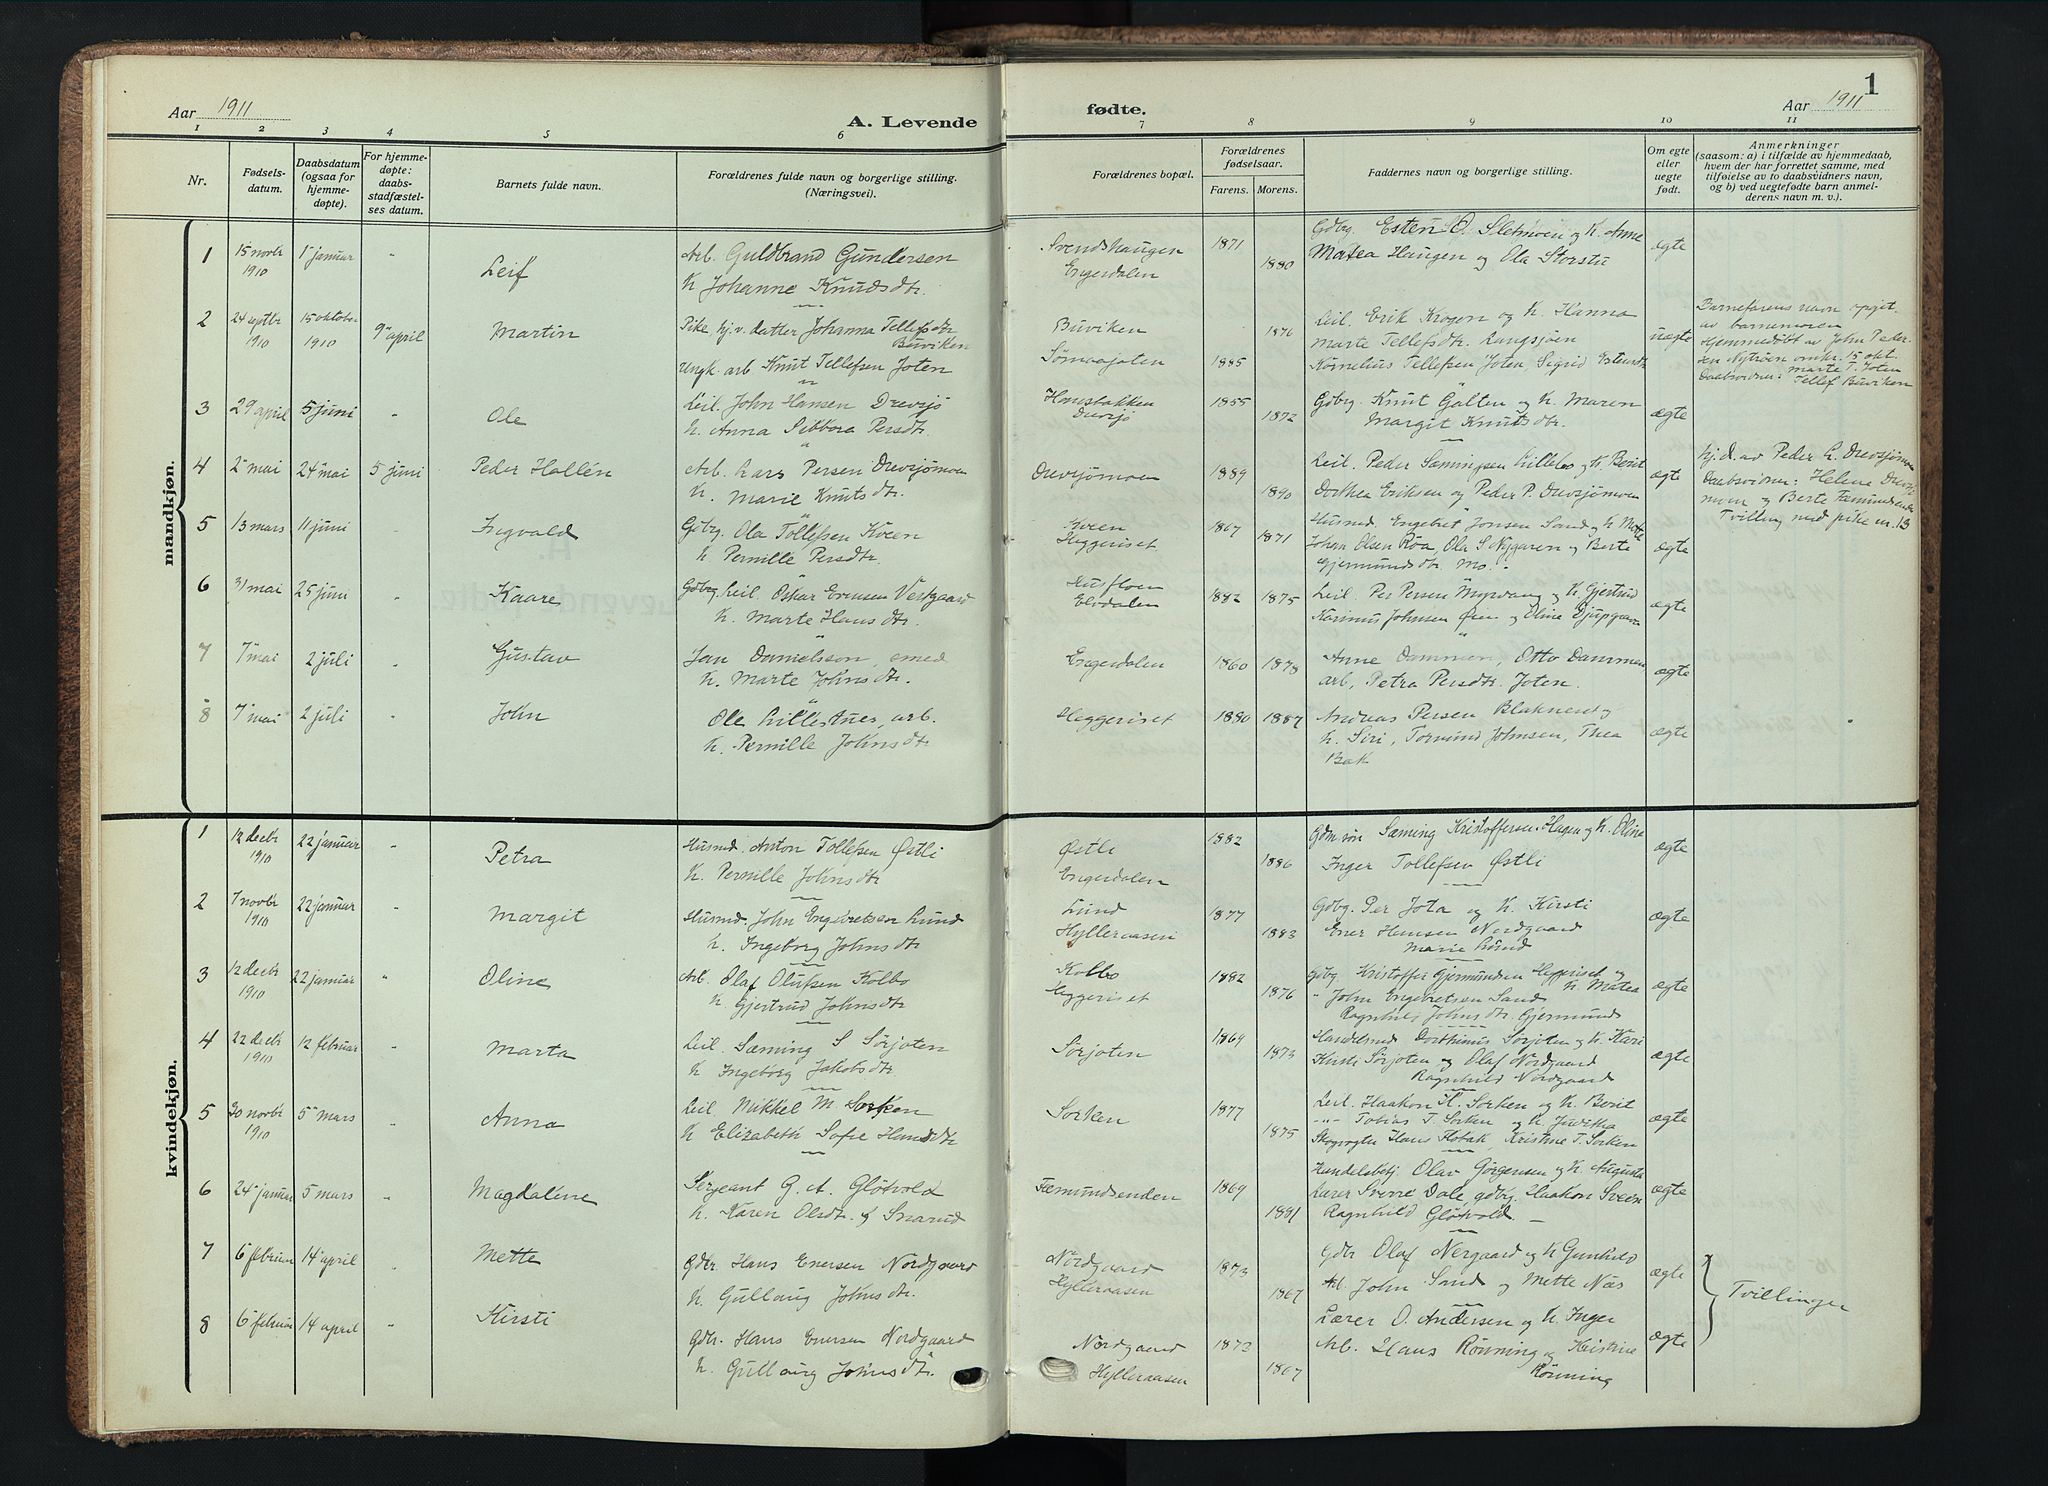 Aar 1911
A. Levende
1 2 3 4 5 6
Nr.
Fødsels-
datum.
Daabsdatum
(ogsaa for
hjemme-
døpte).
For hjemme-
døpte:
daabs-
stadfæstel-
ses datum.
Barnets fulde navn.
Forældrenes fulde navn og borgerlige stilling.
(Næringsvei).
mandkjøn.
1 15 novbr 1 januar " Leif Arb. Guldbrand Gundersen
1910 K Johanne Knudsdtr.
2 24 septbr 15 oktober 9 april Martin Pike hj.v. datter Johanna Tellefsdtr
1910 1910 Buviken
Ungk. arb Knut Tellefsen Joten
3 29 april 5 juni " Ole Leil. John Hansen Drevsjø
K. Anna Sibbora Persdtr.
4 2 mai 24 mai 5 juni Peder Hallén Arb. Lars Persen Drevsjømoen
K. Marie Knutsdtr.
5 13 mars 11 juni Ingvald Gdbr. Ola Tollefsen Kveen
K. Pernille Persdtr.
6 31 mai 25 juni " Kaare Gdbrg Leil. Oskar Evensen Vestgaard
K. Marte Hansdtr.
7 7 mai 2 juli " Gustav Jon Danielsson, smed
K. Marte Johnsdtr.
8 7 mai 2 juli " John Ole Lillestuer, arb.
K. Pernille Johnsdtr
kvindekjøn.
1 12 decbr 22 januar " Petra Husmd. Anton Tollefsen Østli
1910 K. Pernille Johnsdtr
2 7 novbr 22 januar " Margit Husmd. John Engebretsen Lund
1910 K. Ingeborg Johnsdtr
3 12 decbr 22 januar " Oline Arb. Olaf Olufsen Kolbo
1910 K Gjertrud Johnsdtr
4 22 decbr 12 februar " Marta Leil. Sæming S Sørjoten
1910 K Ingeborg Jakobsdtr
5 30 novbr 5 mars " Anna Leil. Mikkel M. Sorken
1910 K Elizabeth Sofie Hansdtr
6 24 januar 5 mars " Magdalene Sergeant G. A. Gløtvold
K. Karen Olsdtr. f Snarud
7 6 februar 14 april " Mette Gdbr Hans Enersen Nordgaard
K. Gullaug Johnsdtr.
8 6 februar 14 april " Kirsti Gdbr. Hans Enersen Nordgaard
K. Gullaug Johnsdtr.
fødte.
1
Aar 1911
7 8 9 10 11
Forældrenes bopæl.
Forældrenes
fødselsaar.
Farens. Morens.
Faddernes navn og borgerlige stilling.
Om egte
eller
uegte
født.
Anmerkninger
(saasom: a) i tilfælde av hjemmedaab,
hvem der har forrettet samme, med
tilføielse av to daabsvidners navn,
og b) ved uegtefødte barn anmel-
derens navn m. v.).
Svendshaugen 1871 Gdbrg. Esten O. Sletmoen og K. Anne ægte
Engerdalen 1880 Matea Haugen og Ola Storstu
Buviken 1876 Leil. Erik Krogen og K. Hanna uægte Barnefarens navn opgit
Marte Tellefsdtr. Langsjøen av barnemoren
Sømaajoten 1885 Kornelius Tellefsen Joten, Sigrid Estensdtr Hjemmedøbt av John Peder-
sen Nytrøen omkr. 15 okt.
Daabsvidner: Marte T. Joten
Tellef Buviken
Hanebakken 1855 Gdbrg. Knut Galten og K. Maren ægte
Drevsjø 1872 Margit Knutsdtr.
Drevsjømoen 1889 Leil. Peder Sæmingsen Lillebo og K. Berit ægte hj.d. av Peder L. Drevsjømoen
1890 Dorthea Eriksen og Peder P. Drevsjømoen Daabsvidner: Helene Drevsjø
moen og Berte Fæmundsenden
Tvilling med pike nr. 13
Kveen 1867 Husmd. Engebret Jonsen Sand og K Mette
Heggeriset 1871 Johan Olsen Røa, Ola S. Nygaren og Berte ægte
Gjermundsdtr. Mo.
Husfloen
Elvdalen 1882 1875 Leil. Per Persen Myrvang og K. Gjertrud ægte
Karinus Johnsen Øien og Oline Djupgaren
Engerdalen 1860 1878 Anne Dammen, Otto Dammen, ægte
arb, Petra Persdtr. Joten.
Heggeriset 1880 1887 Andreas Persen Blakneset og ægte
K. Siri, Tormund Johnsen, Thea
Bak
Østli 1882 Gdm.søn Sæming Kristoffersen Hagen og K. Oline ægte
Engerdalen 1886 Inger Tollefsen Østli
Lund 1877 Gdbrg. Per Jota og K. Kirsti ægte
Hylleraasen 1883 Ener Hansen Nordgaard
Marie Lund
Kolbo 1882 Gdbrg Kristoffer Gjermundsen Heggeriset og ægte
Heggeriset 1876 " John Engebretsen Sand K. Matea
Ragnhild Johnsdtr. Gjermunds
Sørjoten 1869 Handelsmd Dorthinus Sørjoten og K. Kari ægte
1873 Kirsti Sørjoten og Olaf Nordgaard
Ragnhild Nordgaard
Sorken 1877 Leil. Haakon H. Sorken og K. Berit ægte
-"- Tobias T. Sorken og K.
1875 Skogvogter Hans Hobak Kristine T. Sorken
Fæmundsenden 1869 Handelsbetj. Olav Jørgensen og K. Augusta ægte
Lærer Sverre Dale, gdbrg. Haakon Sveen
1881 Ragnhild Gløtvold.
Nordgaard 1873 Gdbr Olaf Nergaard og K Gunhild ægte
Hylleraasen 1867 Arb. John Sand og Mette Næs
Tvillinger
Nordgaard 1873 Lærer O. Andersen og K. Inger ægte
Hylleraasen 1867 Arb. Hans Rønning og Kristine
Rønning